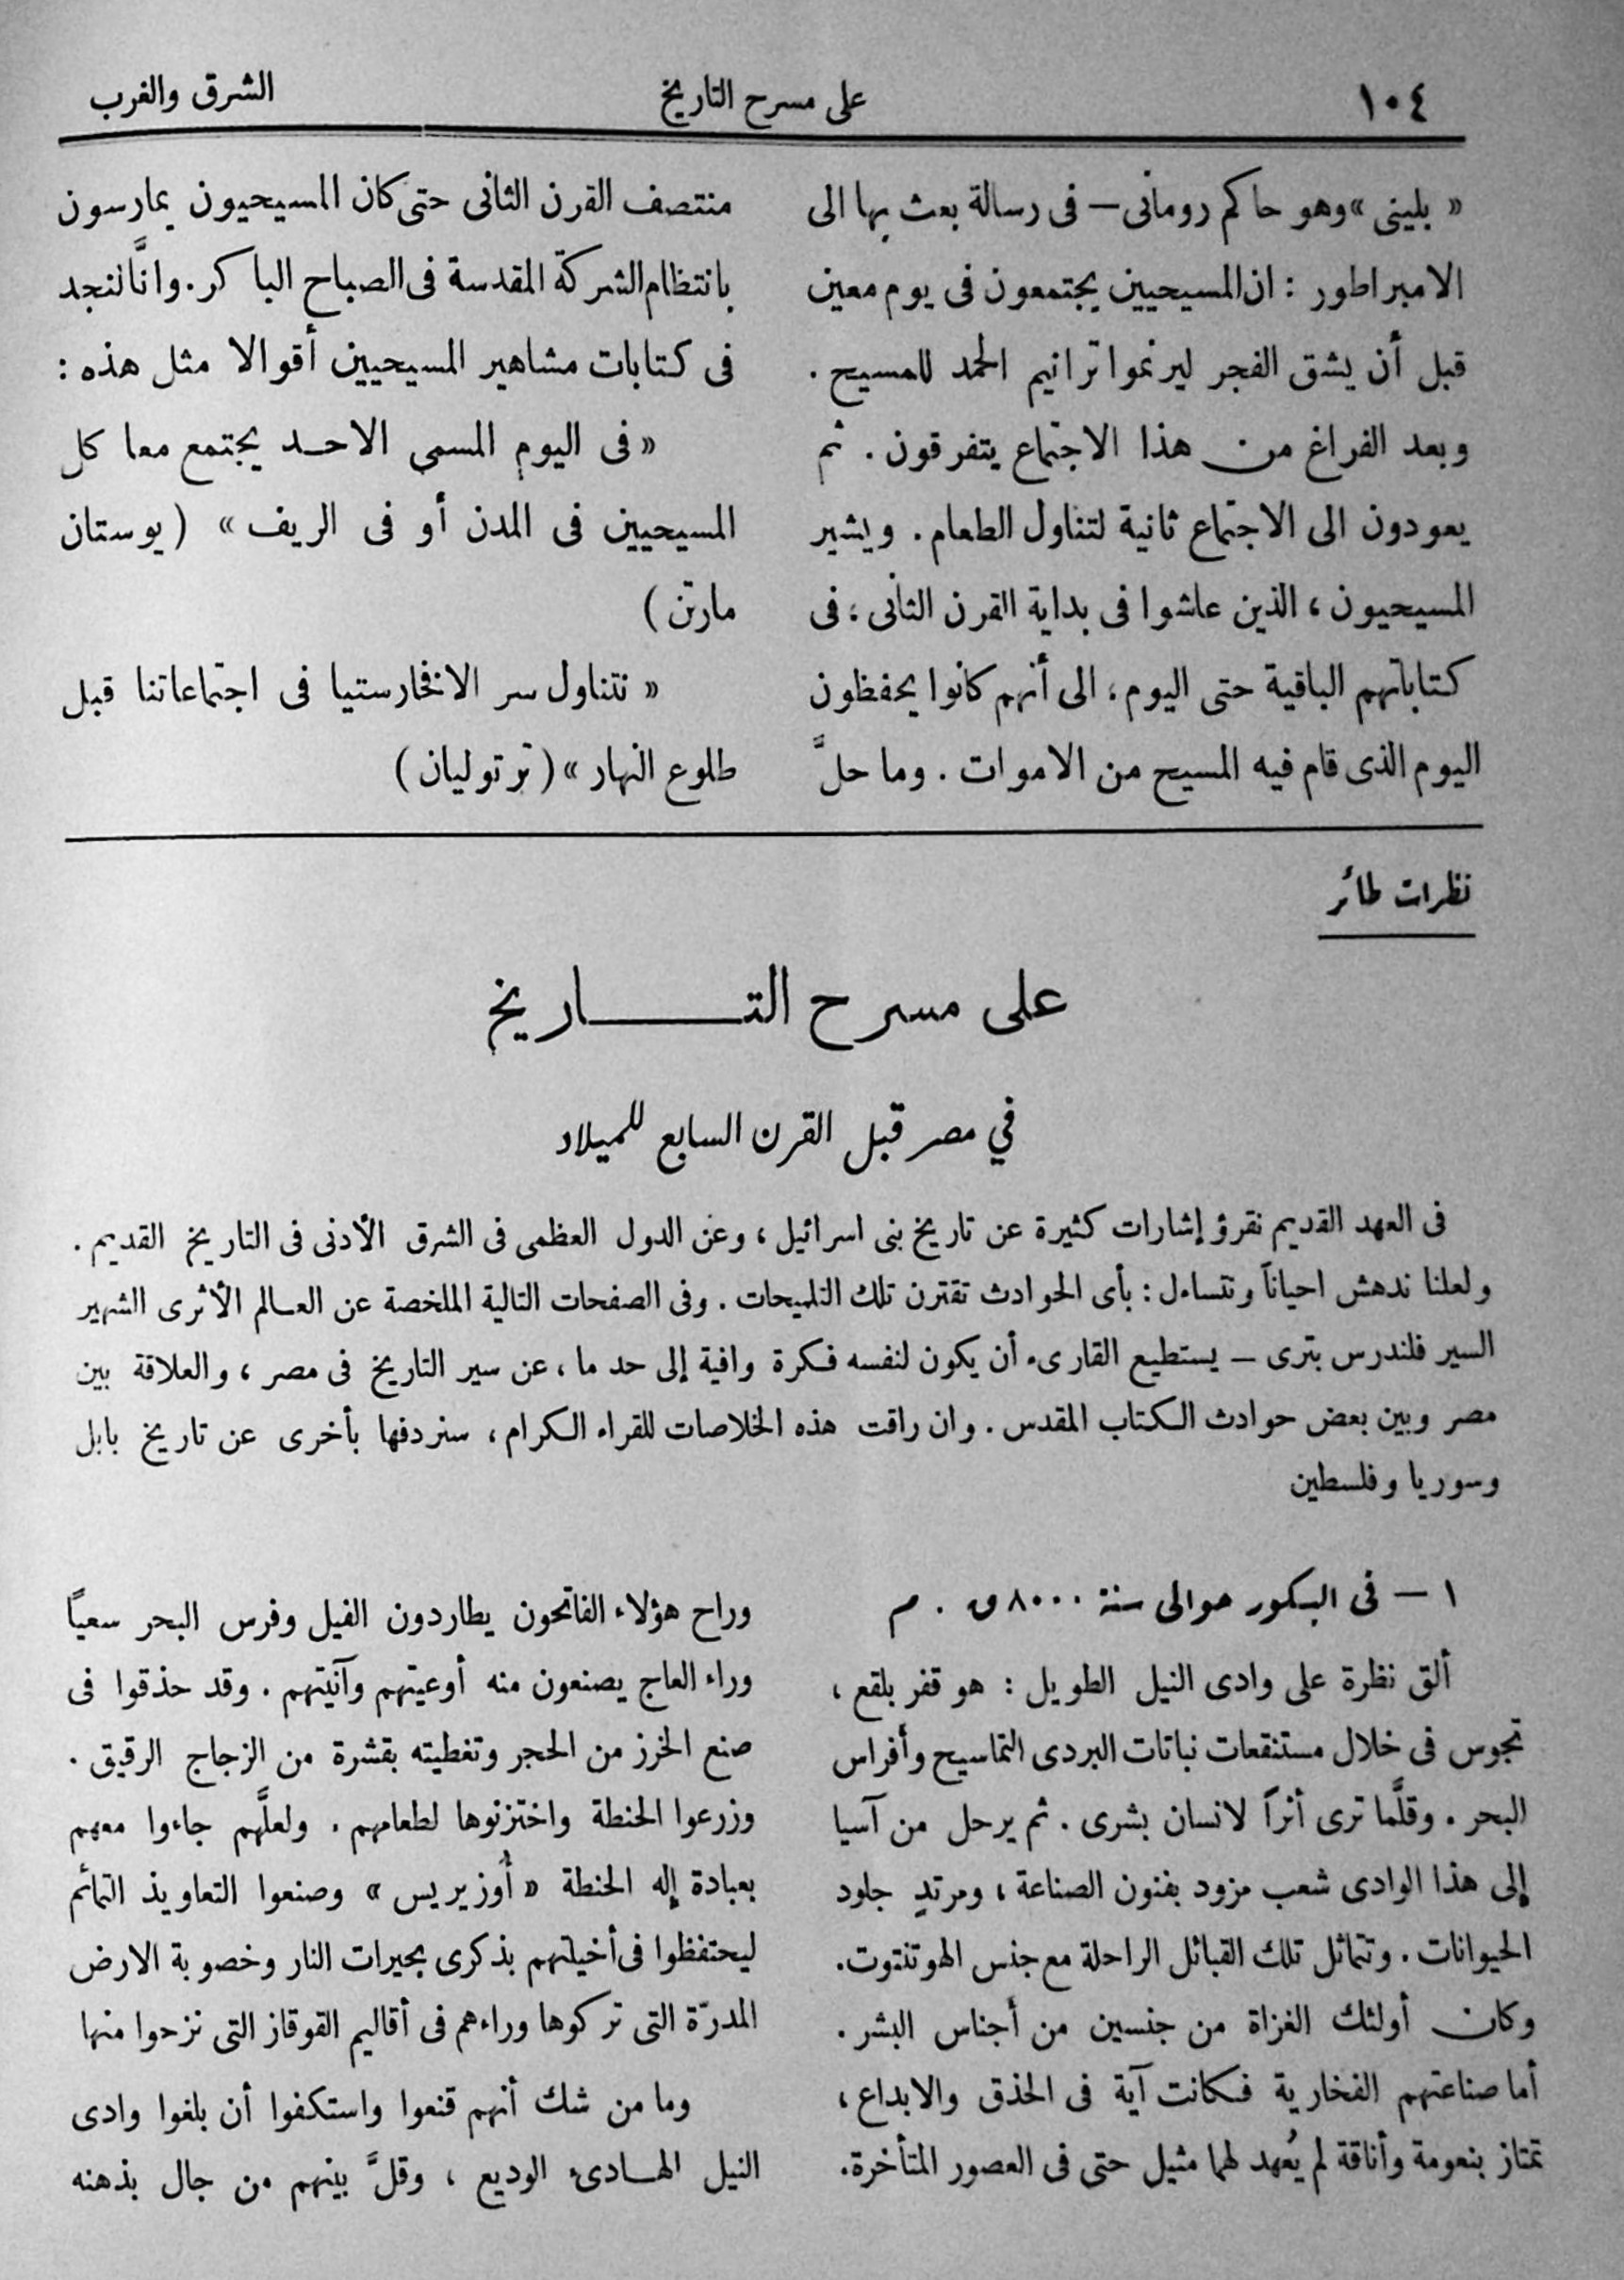 ١٠٤ على مسرح التاريخ الشرق والغرب
« بلينى » وهو حاكم رومانى — فى رسالة بعث بها الى
الامبراطور : ان المسيحيين يجتمعون فى يوم معين
قبل أن يشق الفجر ليرنموا ترانيم الحمد للمسيح .
وبعد الفراغ من هذا الاجتماع يتفرقون . ثم
يعودون الى الاجتماع ثانية لتناول الطعام . ويشير
المسيحيون ، الذين عاشوا فى بداية القرن الثانى ، فى
كتاباتهم الباقية حتى اليوم ، الى أنهم كانوا يحفظون
اليوم الذى قام فيه المسيح من الاموات . وما حلَّ
منتصف القرن الثانى حتى كان المسيحيون يمارسون
بانتظام الشركة المقدسة فى الصباح الباكر . وانَّا لنجد
فى كتابات مشاهير المسيحيين أقوالا مثل هذه :
« فى اليوم المسمى الاحد يجتمع معا كل
المسيحيين فى المدن أو فى الريف » ( يوستان
مارتن )
« نتناول سر الافخارستيا فى اجتماعاتنا قبل
طلوع النهار » ( ترتوليان )
نظرات طائر
على مسرح التاريخ
في مصر قبل القرن السابع للميلاد
فى العهد القديم نقرؤ إشارات كثيرة عن تاريخ بنى اسرائيل ، وعن الدول العظمى فى الشرق الأدنى فى التاريخ القديم .
ولعلنا ندهش احياناً ونتساءل : بأى الحوادث تقترن تلك التلميحات . وفى الصفحات التالية الملخصة عن العالم الأثرى الشهير
السير فلندرس بترى — يستطيع القارىء أن يكون لنفسه فكرة وافية إلى حد ما ، عن سير التاريخ فى مصر ، والعلاقة بين
مصر وبين بعض حوادث الكتاب المقدس . وان راقت هذه الخلاصات للقراء الكرام ، سنردفها بأخرى عن تاريخ بابل
وسوريا وفلسطين
١ — فى البكور حوالى سنة ٨٠٠٠ ق . م
ألق نظرة على وادى النيل الطويل : هو قفر بلقع ،
تجوس فى خلال مستنقعات نباتات البردى التماسيح وأفراس
البحر . وقلَّما ترى أثراً لانسان بشرى . ثم يرحل من آسيا
إلى هذا الوادى شعب مزود بفنون الصناعة ، ومرتدٍ جلود
الحيوانات . وتتماثل تلك القبائل الراحلة مع جنس الهوتنتوت .
وكان أولئك الغزاة من جنسين من أجناس البشر .
أما صناعتهم الفخارية فكانت آية فى الحذق والابداع ،
تمتاز بنعومة وأناقة لم يُعهد لهما مثيل حتى فى العصور المتأخرة .
وراح هؤلاء الفاتحون يطاردون الفيل وفرس البحر سعياً
وراء العاج يصنعون منه أوعيتهم وآنيتهم . وقد حذقوا فى
صنع الخرز من الحجر وتغطيته بقشرة من الزجاج الرقيق .
وزرعوا الحنطة واختزنوها لطعامهم . ولعلَّهم جاءوا معهم
بعبادة إله الحنطة « أُوزيريس » وصنعوا التعاويذ التمائم
ليحتفظوا فى أخيلتهم بذكرى بحيرات النار وخصوبة الارض
المدرّة التى تركوها وراءهم فى أقاليم القوقاز التى نزحوا منها
وما من شك أنهم قنعوا واستكفوا أن بلغوا وادى
النيل الهادىء الوديع ، وقلَّ بينهم من جال بذهنه